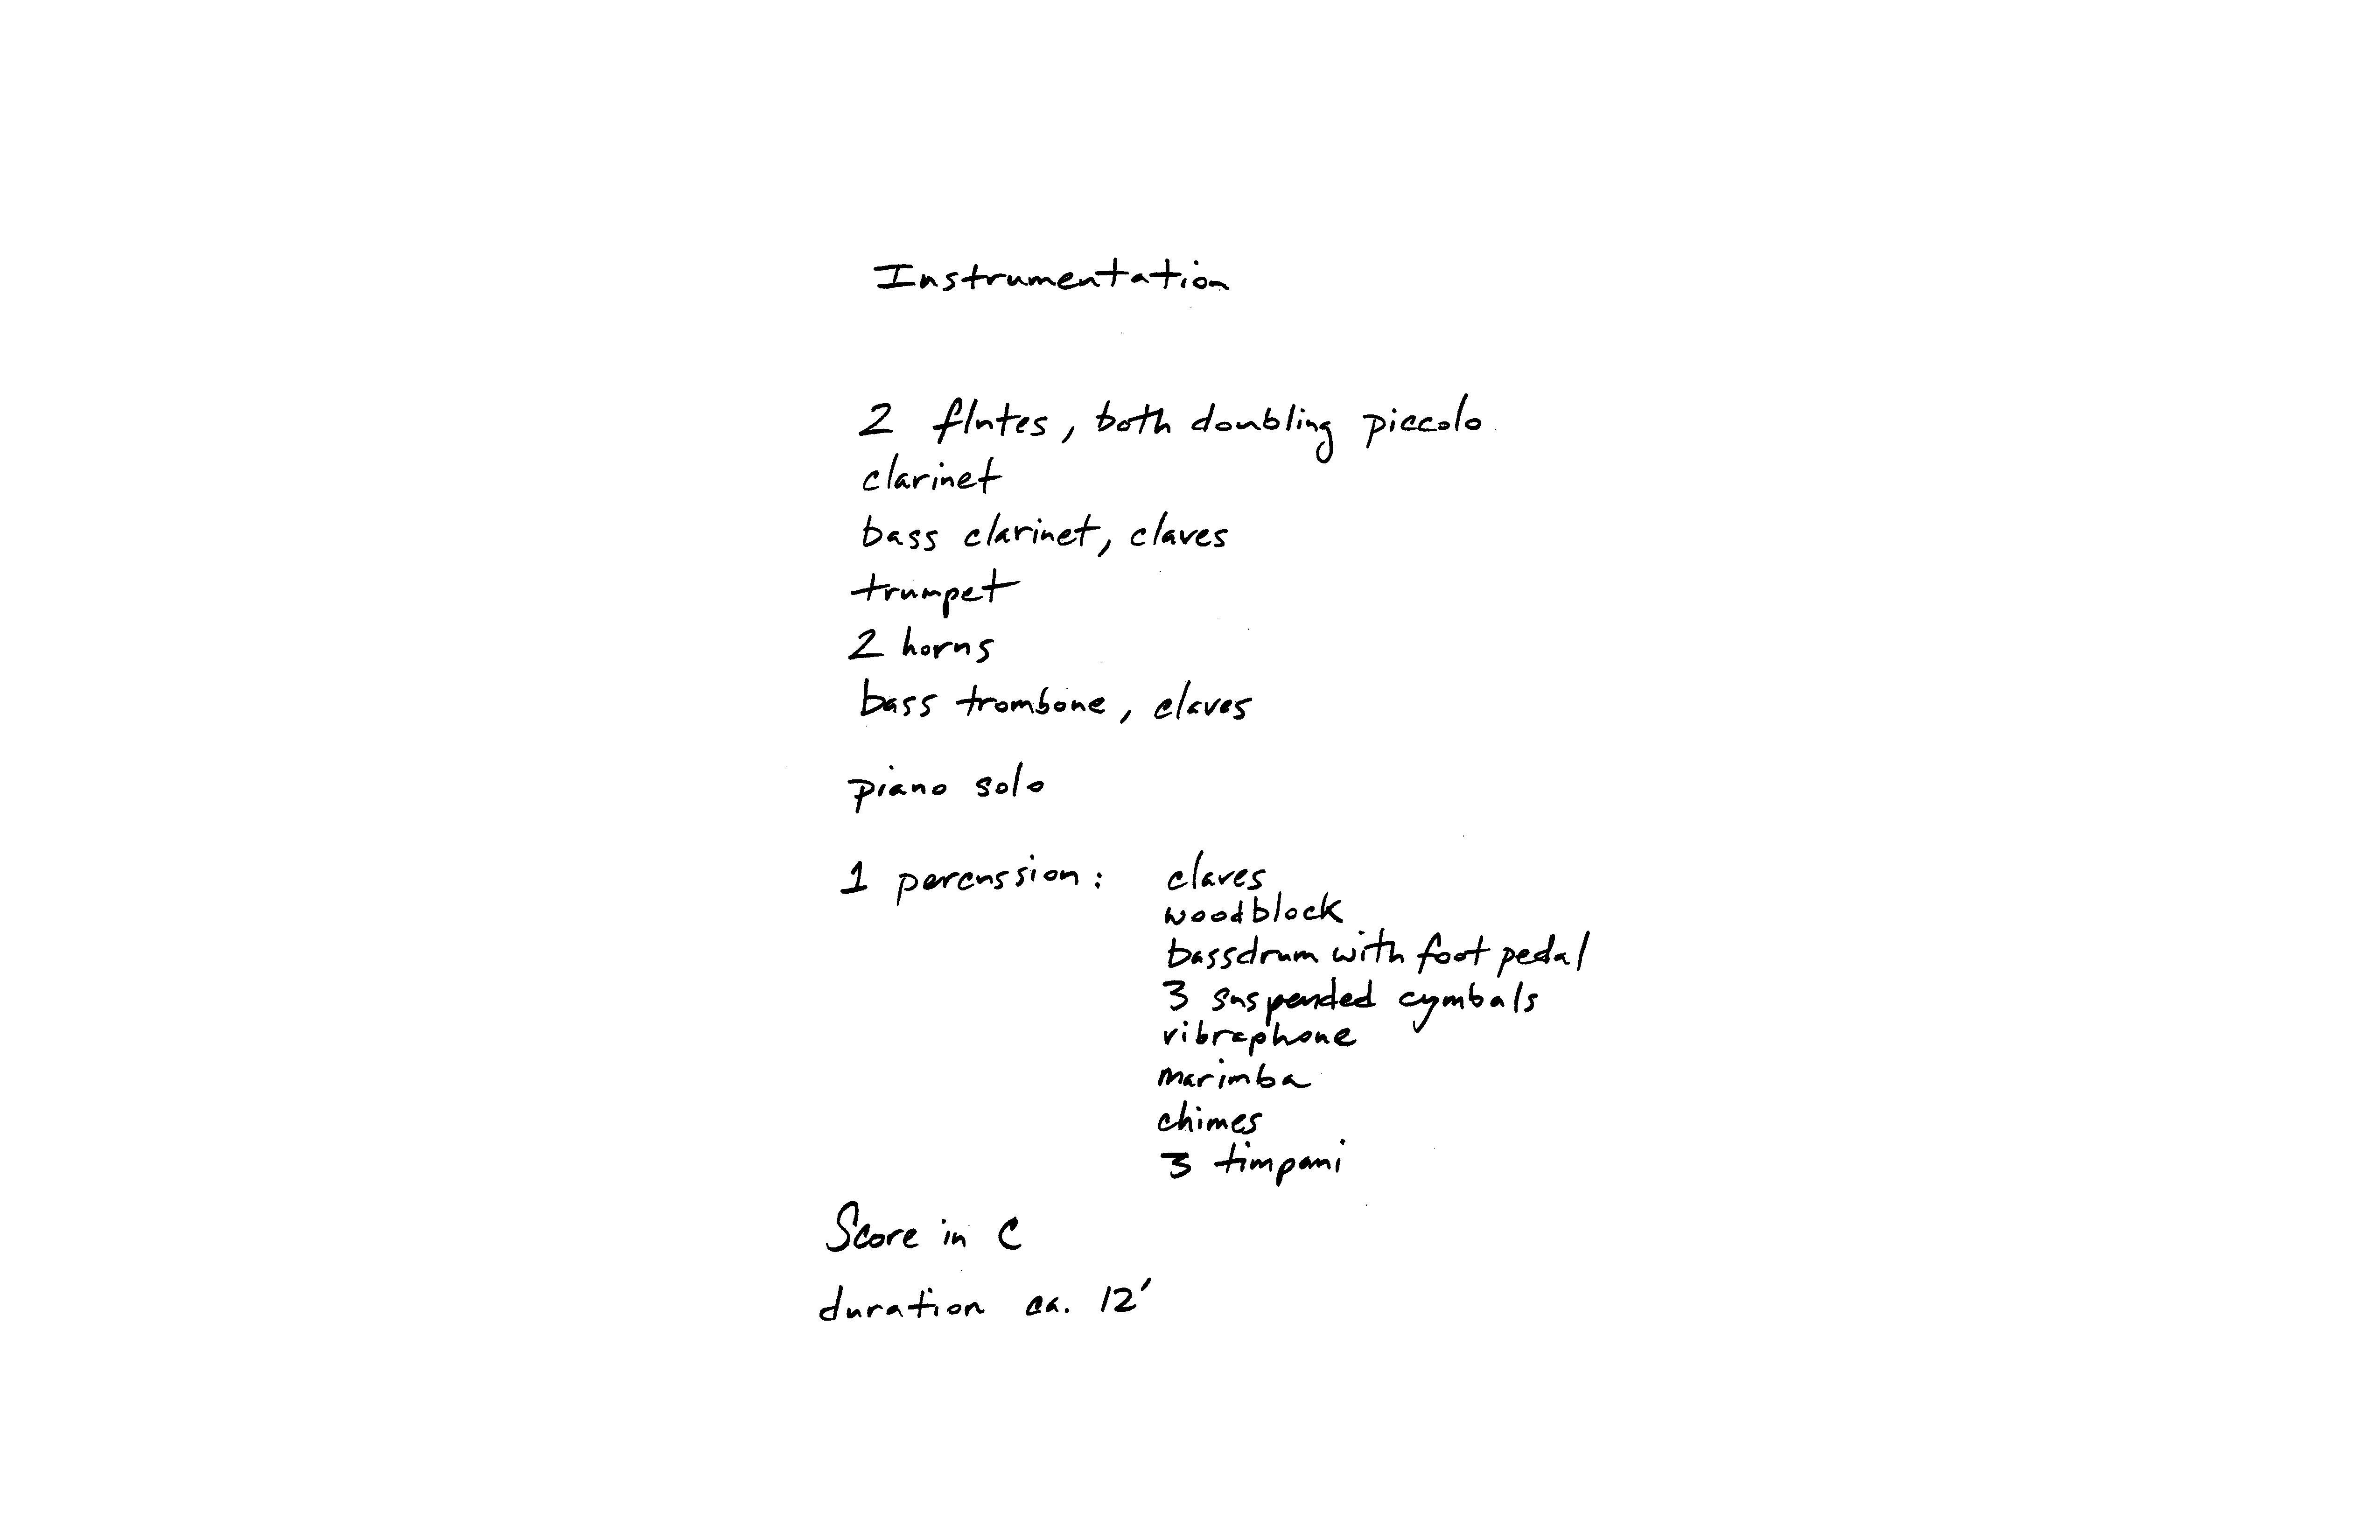 Instrumentation
2 flutes, both doubling piccolo
clarinet
bass clarinet, claves
trumpet
2 horns
bass trombone, claves
piano solo
1 percussion: claves
woodblock
bassdrum with foot pedal
3 suspended cymbals
vibraphone
marimba
chimes
3 timpani
Score in C
duration ca. 12'